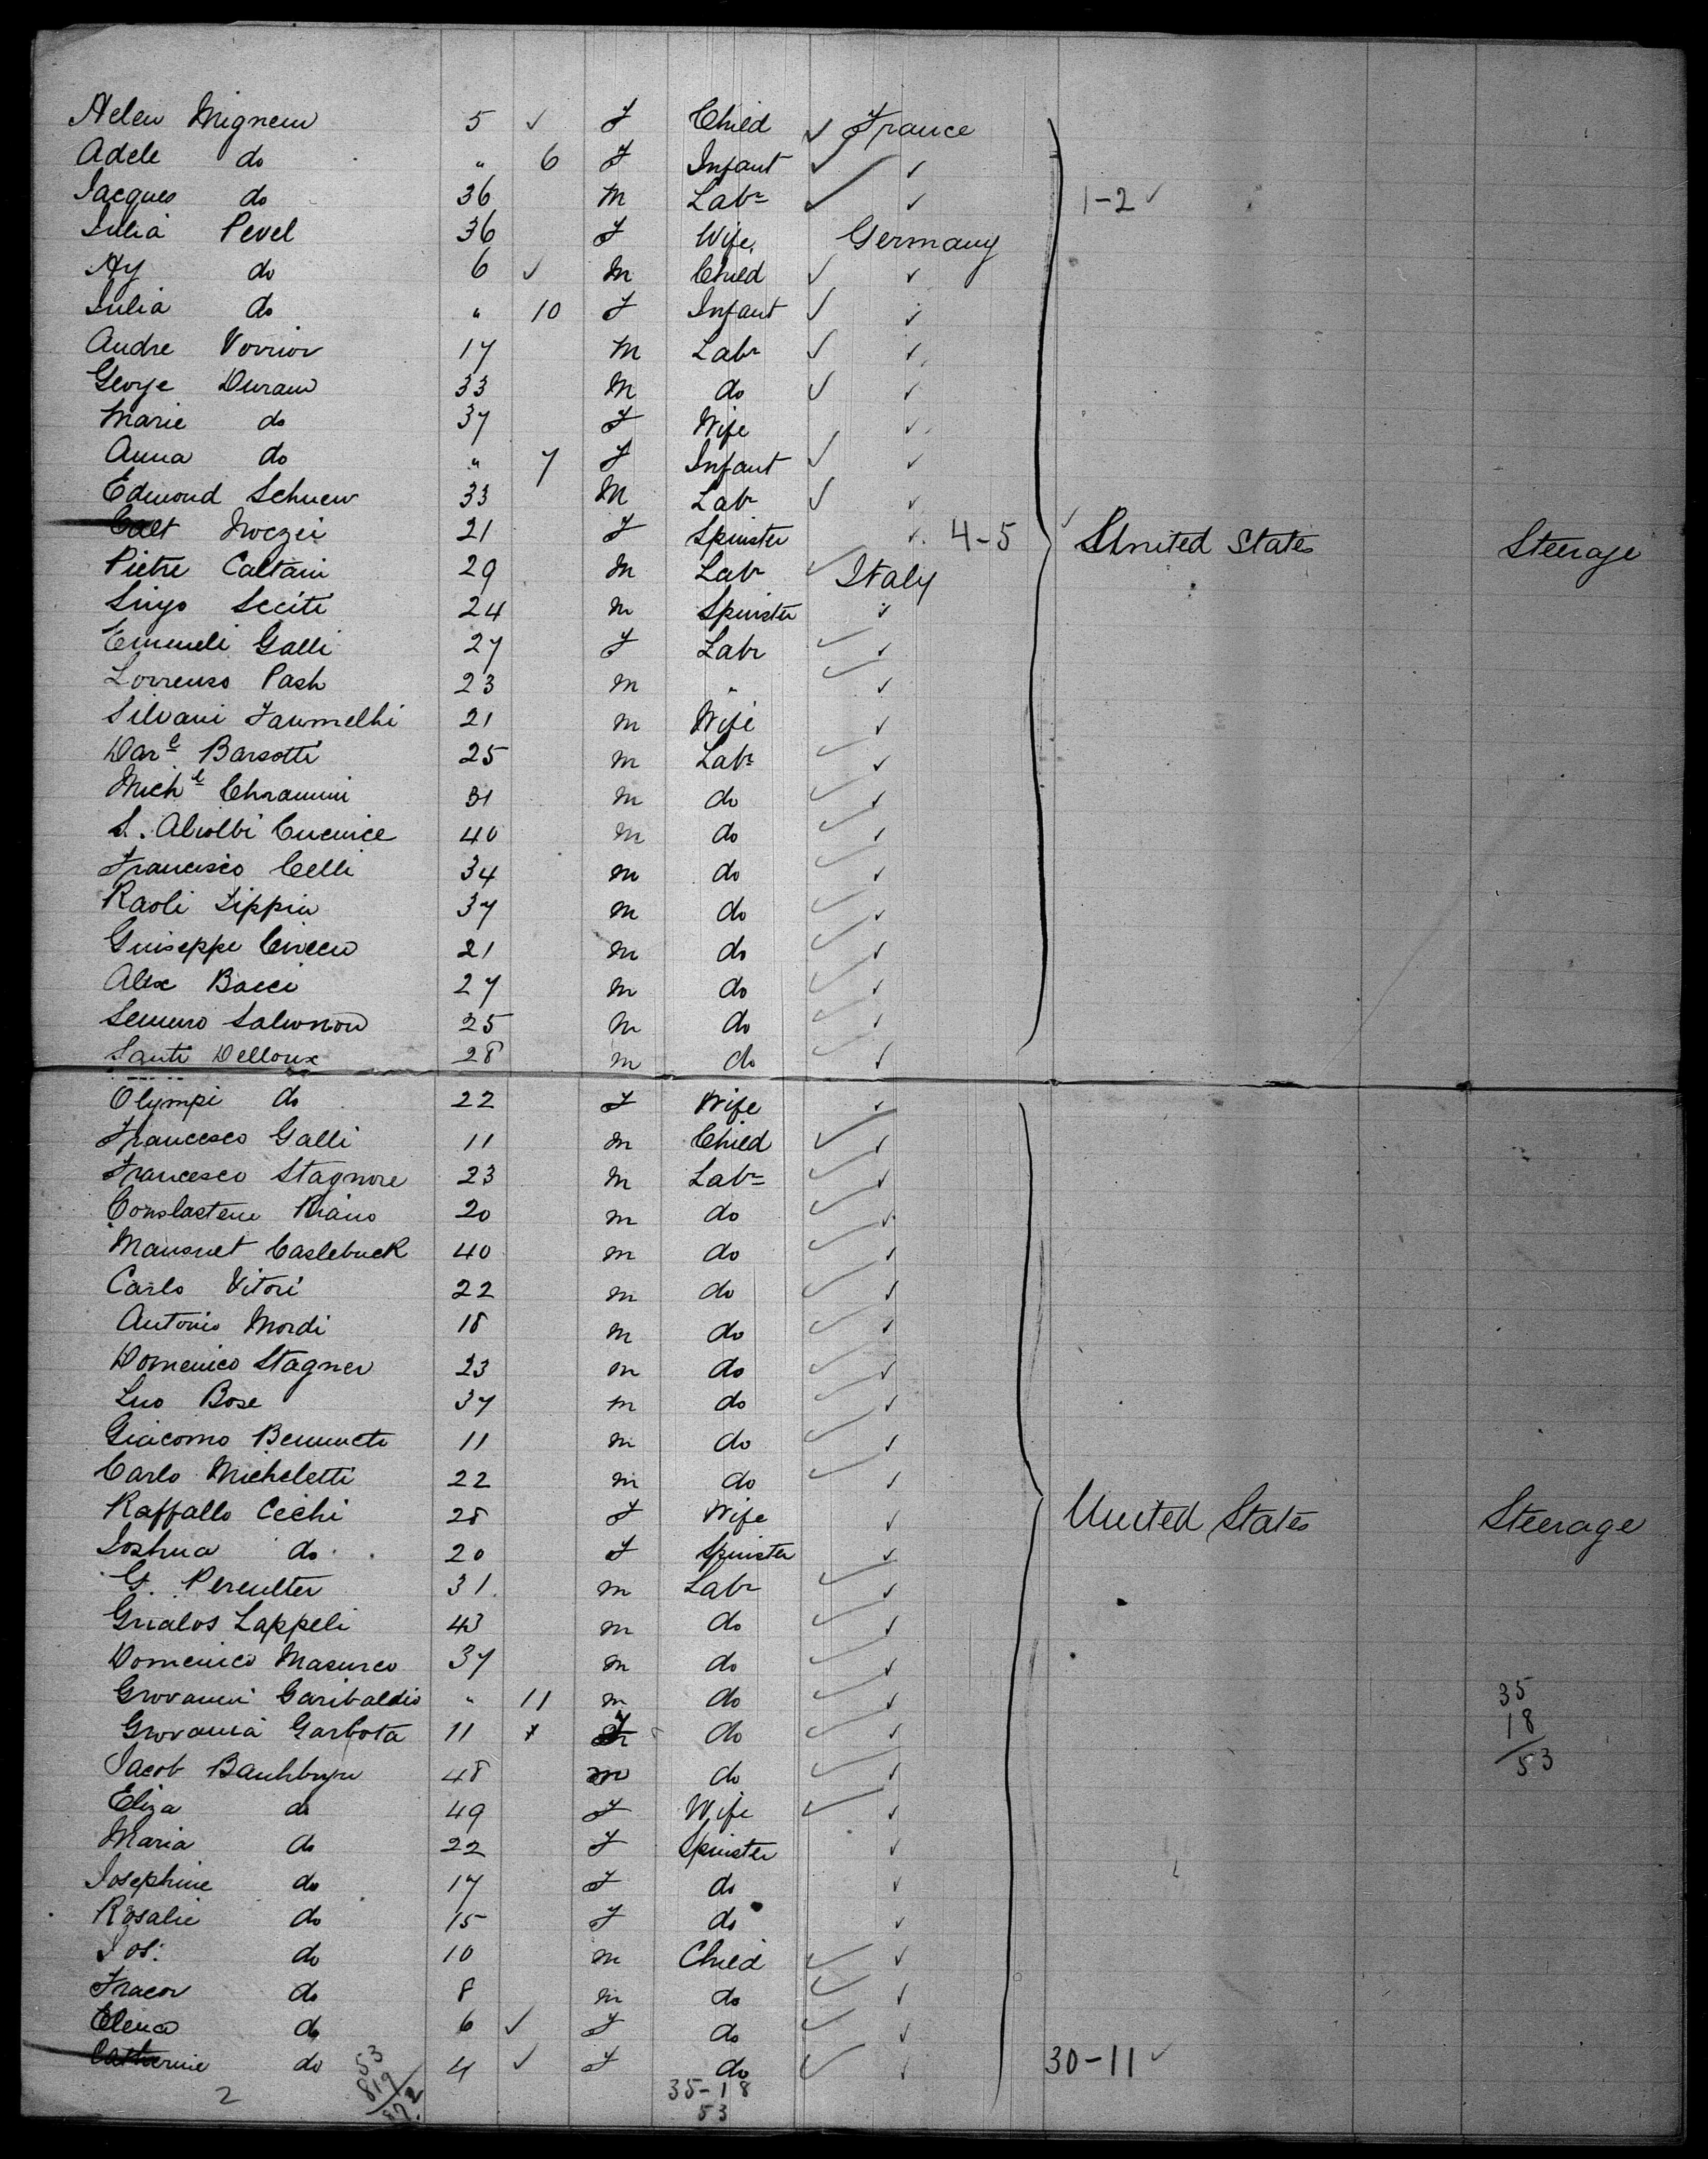 Helen Mignem 5 ✓ F Child ✓ France
Adele do " 6 F Infant ✓ ✓
Jacques do 36 M Labr ✓ ✓ 1-2 ✓
Julia Pevel 36 F Wife Germany
Hy do 6 ✓ M Child ✓ ✓
Julia do " 10 F Infant ✓ ✓
Andre 17 M Labr ✓ ✓
George Duran 33 M do ✓ ✓
Marie do 37 F Wife ✓
Anna do " 7 F Infant ✓ ✓
Edmond 33 M Labr ✓ ✓
21 F Spinster ✓ 4-5 ✓ United States Steerage
Pietre Caltani 29 M Labr ✓ Italy
24 M Spinster ✓
Galli 27 F Labr ✓ ✓
Lorrenso Pash 23 M " ✓ ✓
Silvani 21 M Wife ✓
Barsotti 25 M Labr ✓ ✓
Michl 31 M do ✓ ✓
S. 40 M do ✓ ✓
Francisco Celli 34 M do ✓ ✓
Raoli Lippin 37 M do ✓ ✓
Guiseppe 21 M do ✓ ✓
Alex Bacci 27 M do ✓ ✓
25 M do ✓ ✓
Santi Delloux 28 M do ✓ ✓
Olympi do 22 F Wife ✓
Francesco Galli 11 M Child ✓ ✓
Francesco Stagnore 23 M Labr ✓ ✓
20 M do ✓ ✓
40 M do ✓ ✓
Carlo Vitori 22 M do ✓ ✓
Antonio Mordi 18 M do ✓ ✓
Domenico Stagner 23 M do ✓ ✓
Bose 37 M do ✓ ✓
Giacomo 11 M do ✓ ✓
Carlo Micheletti 22 M do ✓ ✓
Raffallo Cechi 28 F Wife ✓ United States Steerage
Joshua do 20 F Spinster ✓
G. 31 M Labr ✓ ✓
Lappeli 43 M do ✓ ✓
Domenico Masurco 37 M do ✓ ✓
Grovanni Garibaldio " 11 M do ✓ ✓
Grovania Garbota 11 F do ✓ ✓
Jacob 48 M do ✓ ✓
Eliza do 49 F Wife ✓ ✓
Maria do 22 F Spinster ✓
Josephine do 17 F do ✓
Rosalie do 15 F do ✓
Jos: do 10 M Child ✓ ✓
do 8 M do ✓ ✓
Elena do 6 ✓ F do ✓ ✓
Catherine do 4 ✓ F do ✓ ✓ 30-11 ✓
35
18
53
53
819
872
2
35-18
53